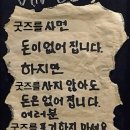 굿즈를 사면
돈이 없어 집니다.
하지만
굿즈를 사지 않아도
돈은 없어 집니다.
여러분
굿즈를